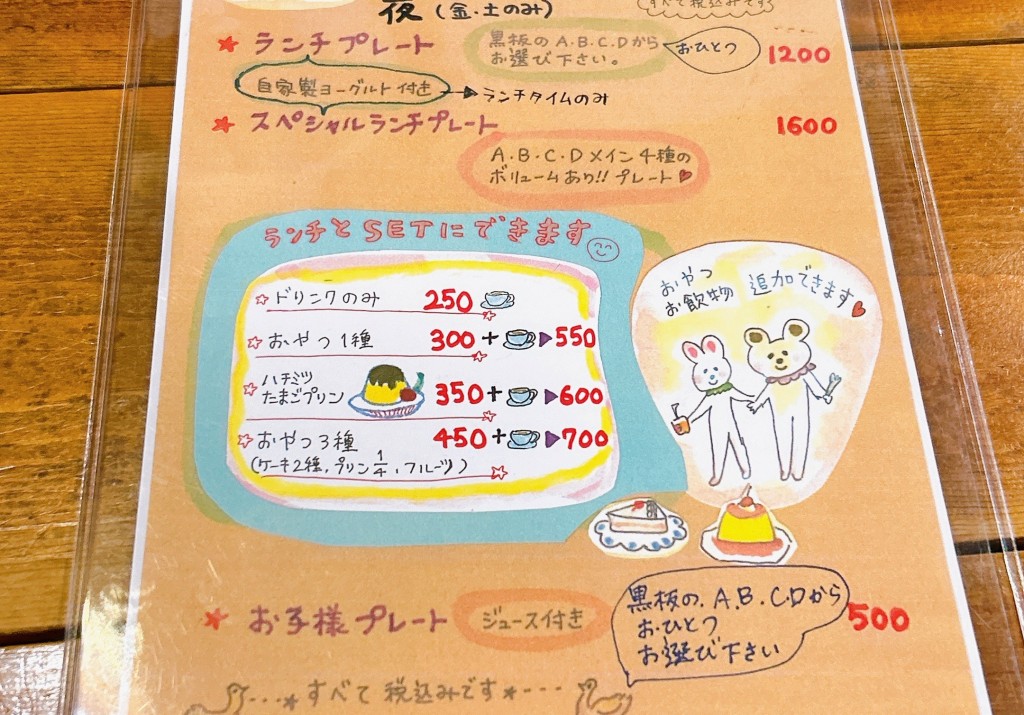 夜(金・土のみ)
すべて税込みです
★ ランチプレート
黒板のA.B.C.Dから
お選び下さい。
おひとつ
1200
自家製ヨーグルト付き → ランチタイムのみ
★ スペシャルランチプレート
1600
A.B.C.Dメイン4種の
ボリュームあり!! プレート♥
ランチとSETにできます
☆ドリンクのみ 250
☆おやつ1種 300+ ▶550
☆ハチミツ
たまごプリン 350+ ▶600
☆おやつ3種 450+ ▶700
(ケーキ2種,プリン1/4,フルーツ)
おやつ
お飲物 追加できます♥
★ お子様プレート
ジュース付き
黒板の A.B.C.Dから
おひとつ
お選び下さい
500
---*すべて税込みです*---